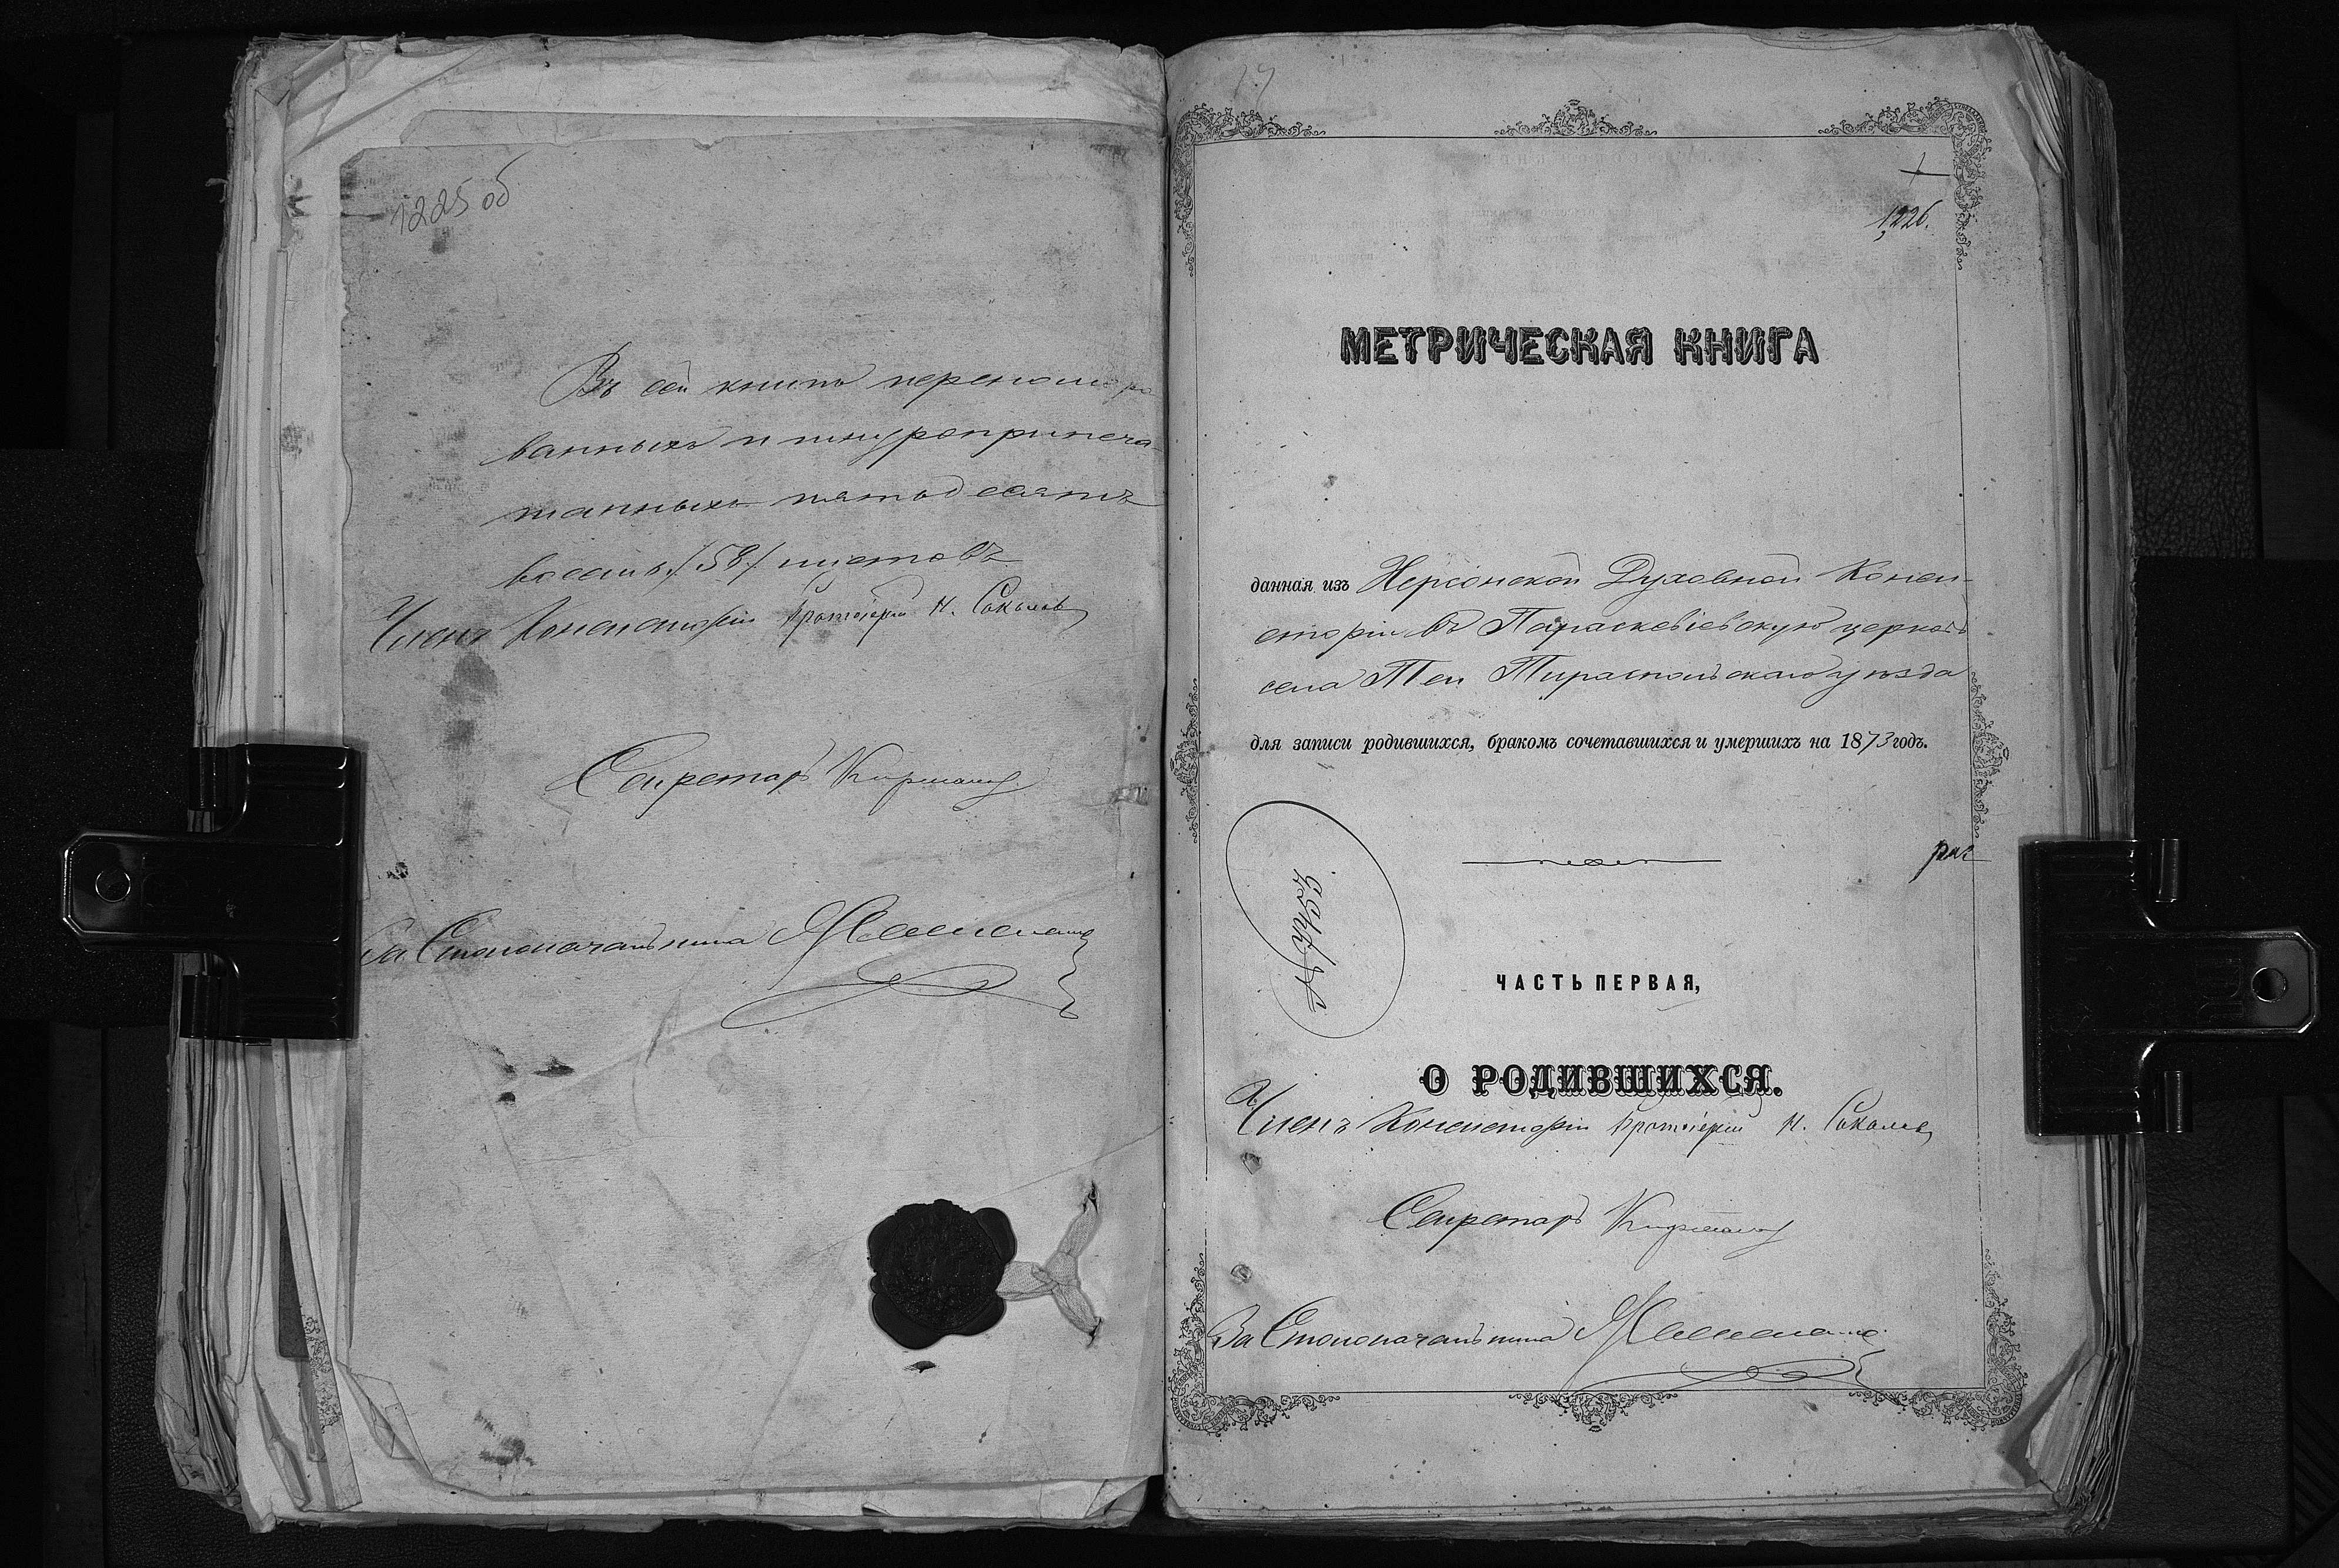 1225 об
Въ сей книгѣ перенумеро
ванныхъ и шнуроприпеча-
танныхъ пятьдесятъ
восемь /58/ листовъ
Членъ Консисторіи Протоіерей Н. Соколовъ
Секретарь
За Столоначальника
1226.
МЕТРИЧЕСКАЯ КНИГА
данная изъ Херсонской Духовной Конси-
сторіи въ Параскевіевскую церковь
села Теи Тираспольскаго уѣзда
для записи родившихся, бракомъ сочетавшихся и умершихъ на 1873 годъ.
ЧАСТЬ ПЕРВАЯ,
О РОДИВШИХСЯ.
Членъ Консисторіи Протоіерей Н. Соколовъ
Секретарь
За Столоначальника